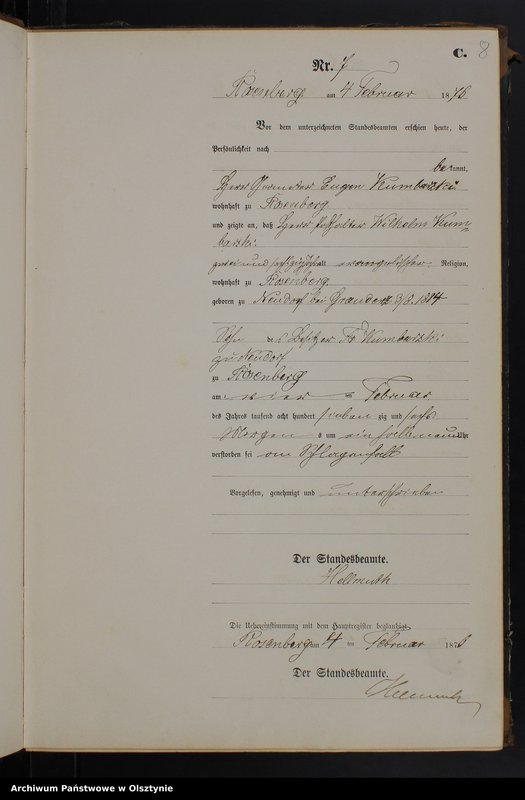 C. 8
Nr. 7
Rosenberg am 4 Februar 1876
Vor dem unterzeichneten Standesbeamten erschien heute, der
Persönlichkeit nach
bekannt,
Herr Eugen Kumbarski
wohnhaft zu Rosenberg
und zeigte an, daß Herr Wilhelm Kum=
barski
zwei und sechzig Jahr alt evangelischer Religion,
wohnhaft zu Rosenberg
geboren zu Neudorf bei Graudenz 3/8. 1814
Sohn des Besitzer Kumbarski
zu Neudorf
zu Rosenberg
am vier ten Februar
des Jahres tausend acht hundert sieben zig und sechs
Morgens um ein halb neun Uhr
verstorben sei am Schlaganfall
Vorgelesen, genehmigt und unterschrieben
Der Standesbeamte.
Hellmuth
Die Uebereinstimmung mit dem Hauptregister beglaubigt
Rosenberg am 4 ten Februar 1876
Der Standesbeamte.
Hellmuth
Archiwum Państwowe w Olsztynie